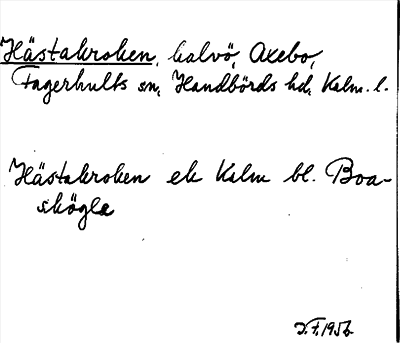 Hästakroken, halvö, Axebo,
Fagerhults sn, Handbörds hd, Kalm. l.
Hästakroken ek Kalm bl. Boa-
skögle
J.F. 1956